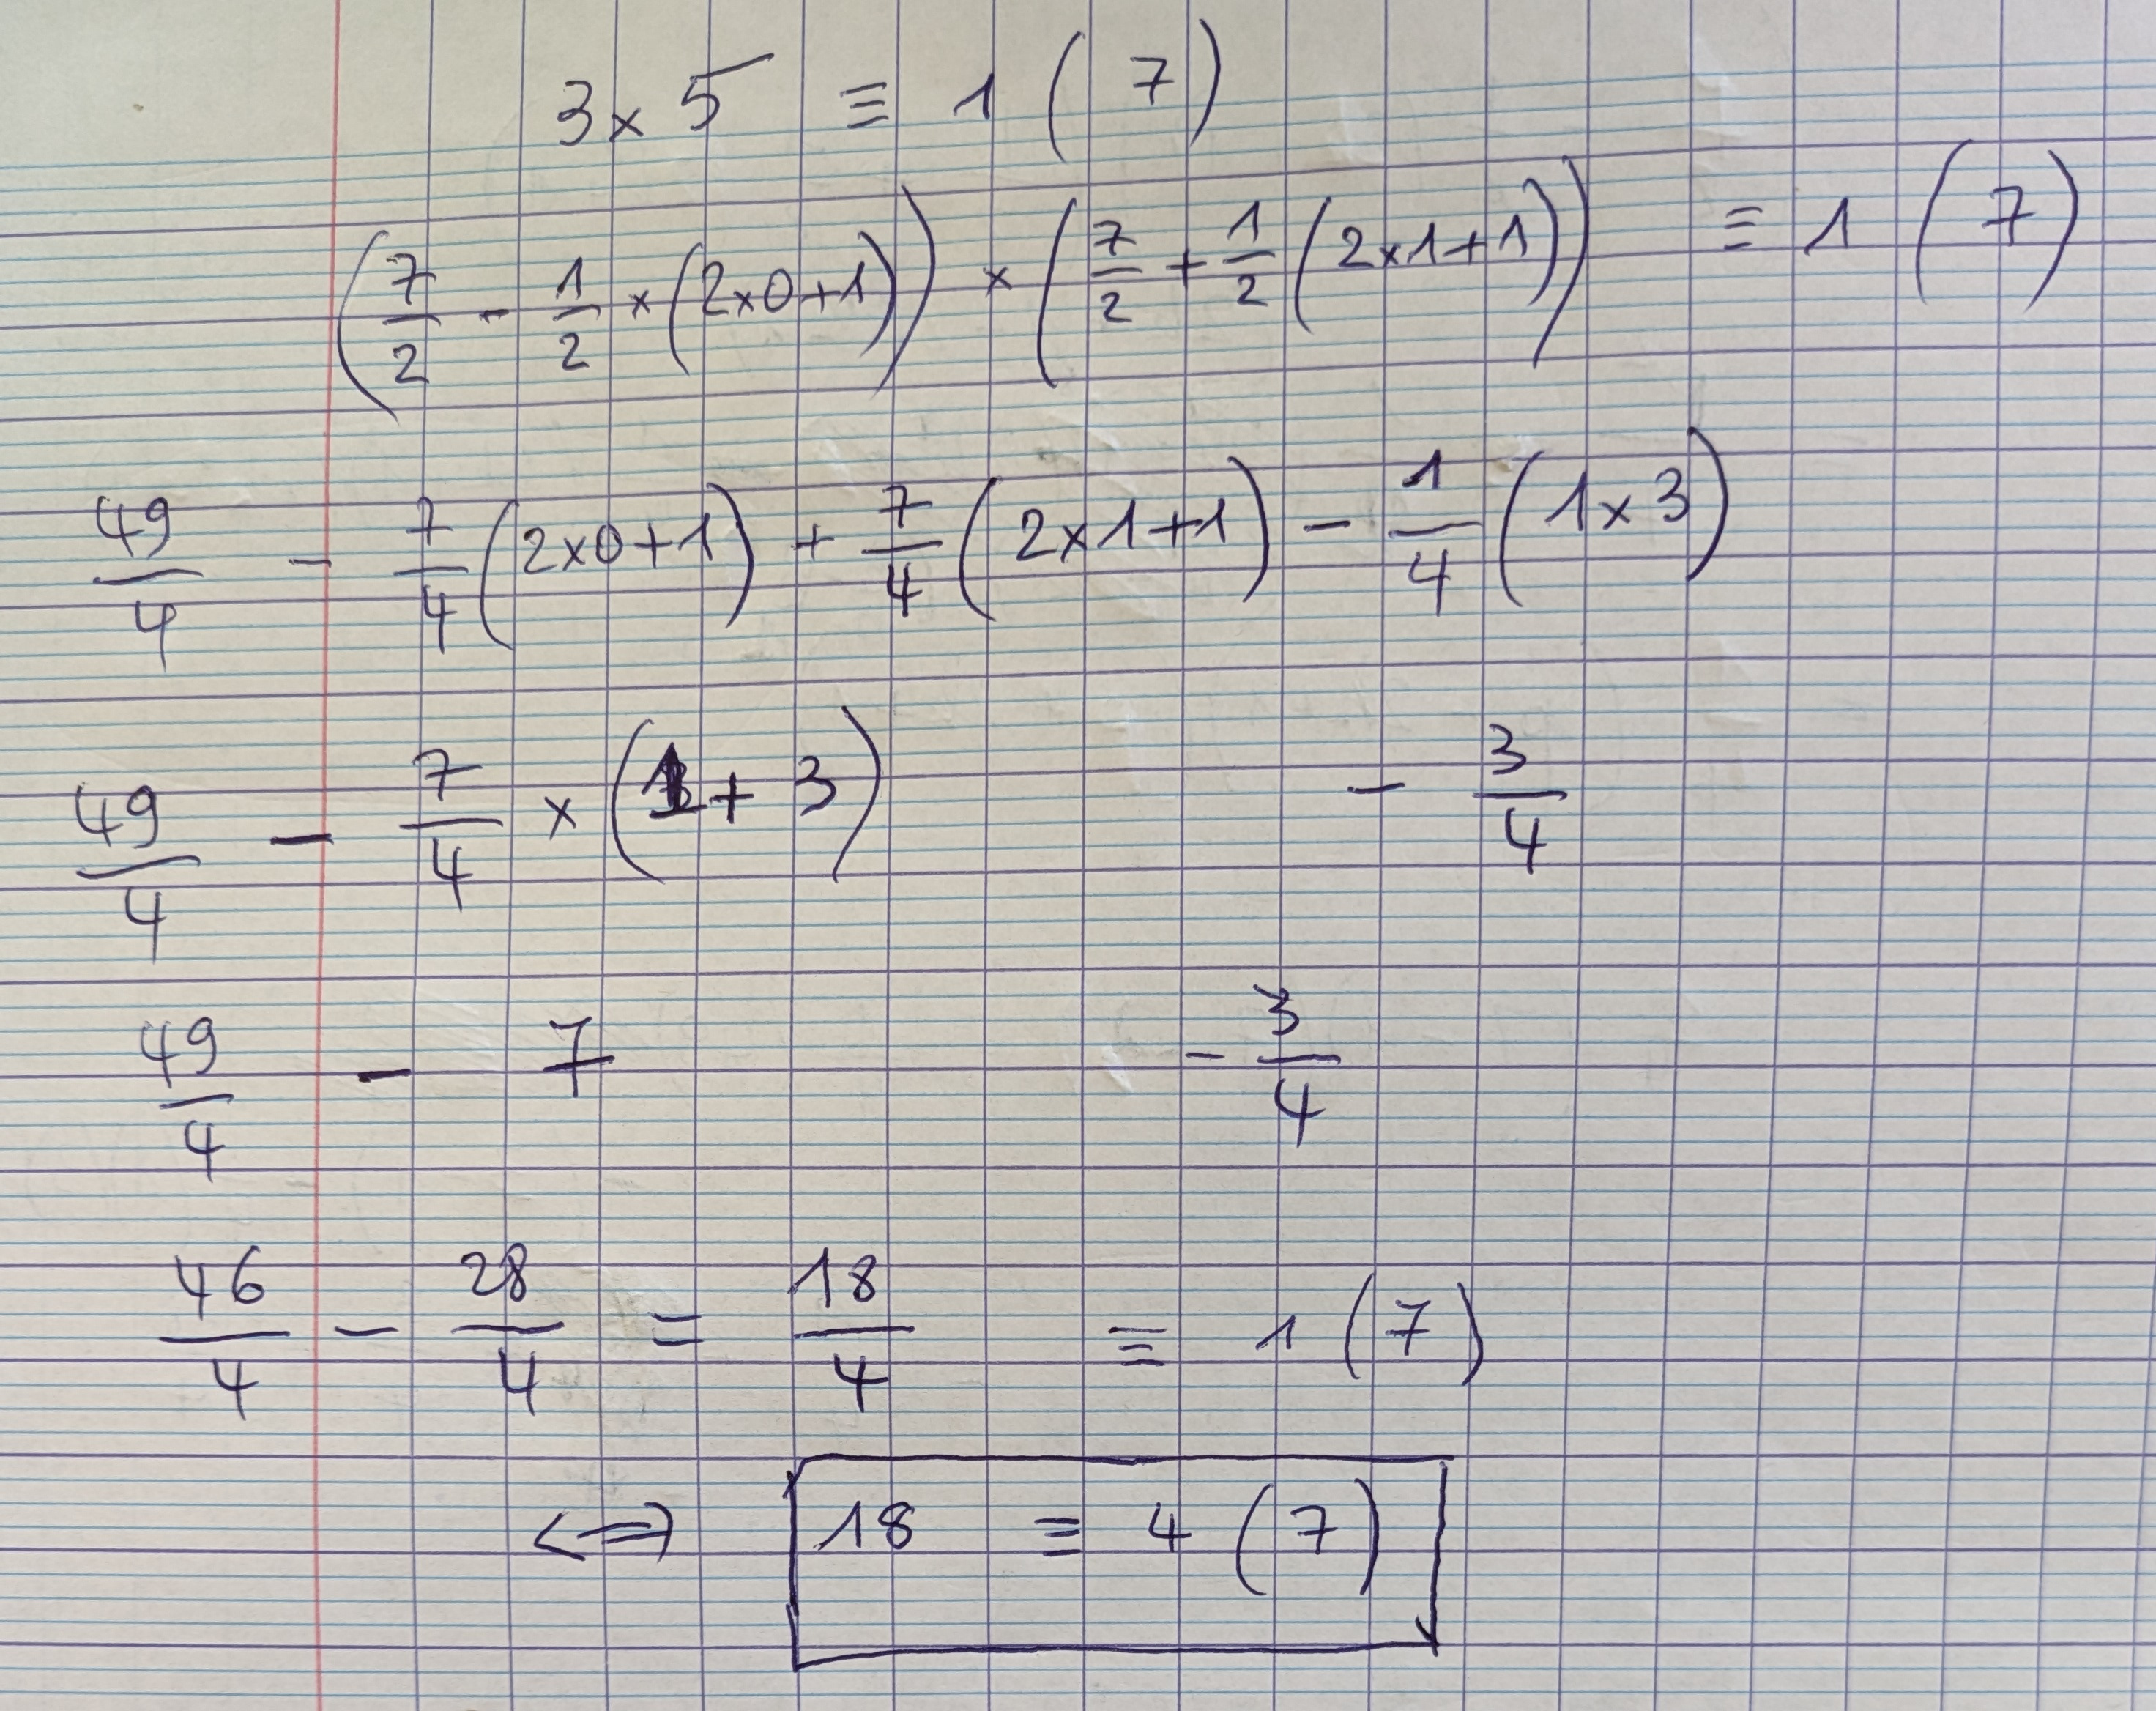 3 × 5 ≡ 1 (7)
(7/2 - 1/2 × (2×0+1)) × (7/2 + 1/2 (2×1+1)) ≡ 1 (7)
49/4 - 7/4 (2×0+1) + 7/4 (2×1+1) - 1/4 (1×3)
49/4 - 7/4 × (1 + 3) - 3/4
49/4 - 7 - 3/4
46/4 - 28/4 = 18/4 ≡ 1 (7)
⟺ 18 ≡ 4 (7)